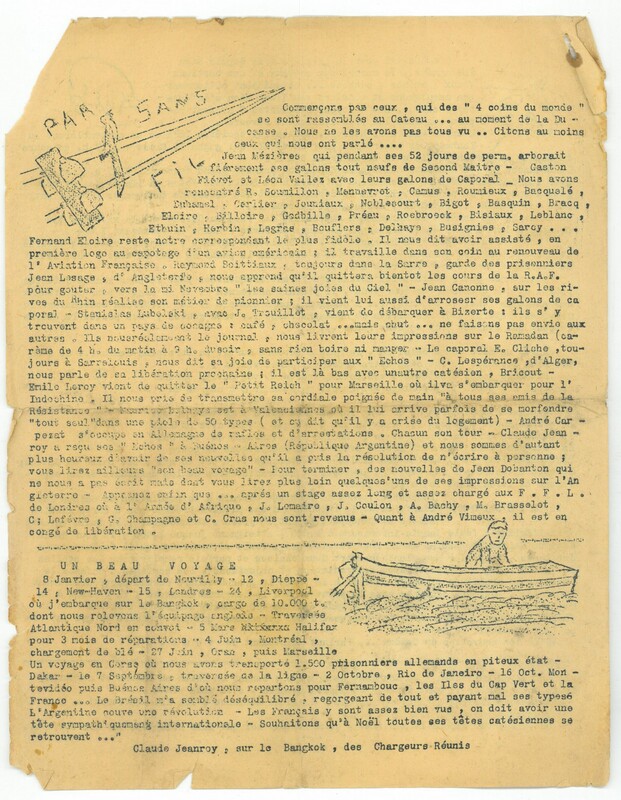 PAR SANS
FIL
Commençons par ceux , qui des " 4 coins du monde "
se sont rassemblés au Cateau ... au moment de la Du -
casse . Nous ne les avons pas tous vu .. Citons au moins
ceux qui nous ont parlé ....
Jean Mézières qui pendant ses 52 jours de perm. arborait
fièrement ses galons tout neufs de Second Maitre - Gaston
Fiévet et Léon Vallez avec leurs galons de Caporal _ Nous avons
rencontré R. Soumillon , Mennevret , Camus , Roumieux , Bacquelé ,
Duhamel , Cerlier , Jouniaux , Noblecourt , Bigot , Basquin , Bracq ,
Eloire , Billoire , Godbille , Préau , Roebroeck , Bisiaux , Leblanc ,
Ethuin , Herbin , Legras , Bouflers , Delhaye , Busignies , Sarcy . . .
Fernand Eloire reste notre correspondant le plus fidèle . Il nous dit avoir assisté , en
première loge au capotage d'un avion américain ; il travaille dans son coin au renouveau de
l' Aviation Française . Raymond Soittiaux , toujours dans la Sarre , garde des prisonniers
Jean Lesage , d' Angleterre , nous apprend qu'il quittera bientot les cours de la R.A.F.
pour gouter , vers la mi Novembre " les saines joies du Ciel " - Jean Canonne , sur les ri-
ves du Rhin réalise son métier de pionnier ; il vient lui aussi d'arroser ses galons de ca
poral - Stanislas Lubolski , avec J. Trouillet , vient de débarquer à Bizerte : ils s' y
trouvent dans un pays de cocagne : café , chocolat ...mais chut ... ne faisons pas envie aux
autres . Ils nous livrent leurs impressions sur le Ramadan (ca-
rême de 4 h. du matin à 9 h. du soir , sans rien boire ni manger - Le caporal E. Cliche ,tou-
jours à Sarrelouis , nous dit sa joie de participer aux " Echos " - C. Lespérance ,d'Alger,
nous parle de sa libération prochaine ; il est là bas avec unautre catésien , Bricout -
Emile Leroy vient de quitter le " Petit Reich " pour Marseille où ilva s'embarquer pour l'
Indochine . Il nous prie de transmettre sa cordiale poignée de main "à tous ses amis de la
Résistance " - Maurice Delhaye est à Valenciennes où il lui arrive parfois de se morfondre
"tout seul"dans une piole de 50 types ( et on dit qu'il y a crise du logement) - André Car -
pezat s'occupe en Allemagne de rafles et d'arrestations . Chacun son tour - Claude Jean -
roy a reçu ses " Echos " à Buénos - Aires (République Argentine) et nous sommes d'autant
plus heureux d'avoir de ses nouvelles qu'il a pris la résolution de n'écrire à personne ;
vous lirez ailleurs "son beau voyage" - Pour terminer , des nouvelles de Jean Dobanton qui
ne nous a pas écrit mais dont vous lirez plus loin quelques'uns de ses impressions sur l'An
gleterre - Apprenez enfin que ... après un stage assez long et assez chargé aux F . F . L .
de Londres où à l' Année d' Afrique , J. Lemaire , J. Coulon , A. Bachy , M. Brasselet ,
C; Lefèvre , G. Champagne et C. Cras nous sont revenus - Quant à André Vimeux , il est en
congé de libération .
UN BEAU VOYAGE
8 Janvier , départ de Neuvilly - 12 , Dieppe -
14 , New-Haven - 15 , Londres - 24 , Liverpool
où j'embarque sur le Bangkok , cargo de 10.000 t.
dont nous relevons l'équipage anglais - Traversée
Atlantique Nord en convoi - 5 Mars Halifax
pour 3 mois de réparations - 4 Juin , Montréal ,
chargement de blé - 27 Juin , Oran , puis Marseille
Un voyage en Corse où nous avons transporté 1.500 prisonniers allemands en piteux état -
Dakar - le 7 Septembre , traversée de la ligne - 2 Octobre , Rio de Janeiro - 16 Oct. Mon -
tevidéo puis Buénos Aires d'où nous repartons pour Fernambouc , les Iles du Cap Vert et la
France ... Le Brésil m'a semblé déséquilibré , regorgeant de tout et payant mal ses typesé
L'Argentine couve une révolution - Les Français y sont assez bien vus , on doit avoir une
tête sympathiquement internationale - Souhaitons qu'à Noël toutes ses têtes catésiennes se
retrouvent ..."
Claude Jeanroy , sur le Bangkok , des Chargeurs Réunis